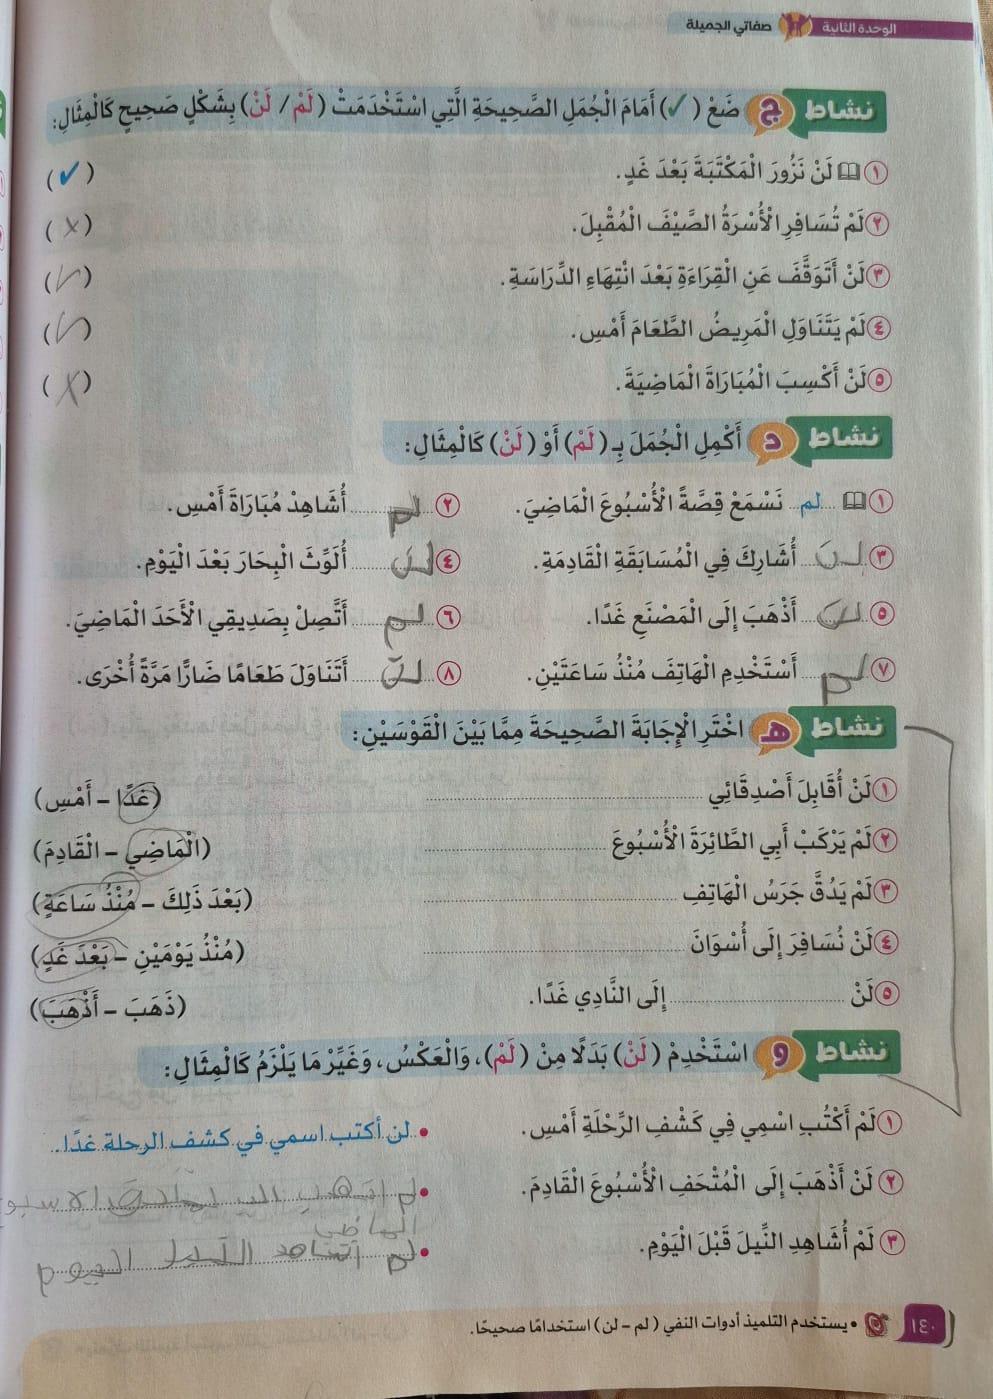 الوحدة الثانية صفاتي الجميلة
نشاط ج ضَعْ (✓) أَمَامَ الْجُمَلِ الصَّحِيحَةِ الَّتِي اسْتَخْدَمَتْ (لَمْ / لَنْ) بِشَكْلٍ صَحِيحٍ كَالْمِثَالِ:
١ لَنْ نَزُورَ الْمَكْتَبَةَ بَعْدَ غَدٍ. (✓)
٢ لَمْ تُسَافِرِ الْأُسْرَةُ الصَّيْفَ الْمُقْبِلَ. (✗)
٣ لَنْ أَتَوَقَّفَ عَنِ الْقِرَاءَةِ بَعْدَ انْتِهَاءِ الدِّرَاسَةِ. (✓)
٤ لَمْ يَتَنَاوَلِ الْمَرِيضُ الطَّعَامَ أَمْسِ. (✓)
٥ لَنْ أَكْسِبَ الْمُبَارَاةَ الْمَاضِيَةَ. (✗)
نشاط د أَكْمِلِ الْجُمَلَ بِـ (لَمْ) أَوْ (لَنْ) كَالْمِثَالِ:
١ لم نَسْمَعْ قِصَّةً الْأُسْبُوعَ الْمَاضِيَ. ٢ لم أُشَاهِدْ مُبَارَاةَ أَمْسِ.
٣ لن أُشَارِكَ فِي الْمُسَابَقَةِ الْقَادِمَةِ. ٤ لن أُلَوِّثَ الْبِحَارَ بَعْدَ الْيَوْمِ.
٥ لن أَذْهَبَ إِلَى الْمَصْنَعِ غَدًا. ٦ لم أَتَّصِلْ بِصَدِيقِي الْأَحَدَ الْمَاضِيَ.
٧ لم أَسْتَخْدِمِ الْهَاتِفَ مُنْذُ سَاعَتَيْنِ. ٨ لن أَتَنَاوَلَ طَعَامًا ضَارًّا مَرَّةً أُخْرَى.
نشاط هـ اخْتَرِ الْإِجَابَةَ الصَّحِيحَةَ مِمَّا بَيْنَ الْقَوْسَيْنِ:
١ لَنْ أُقَابِلَ أَصْدِقَائِي (غَدًا – أَمْسِ)
٢ لَمْ يَرْكَبْ أَبِي الطَّائِرَةَ الْأُسْبُوعَ (الْمَاضِي – الْقَادِمَ)
٣ لَمْ يَدُقَّ جَرَسُ الْهَاتِفِ (بَعْدَ ذَلِكَ – مُنْذُ سَاعَةٍ)
٤ لَنْ نُسَافِرَ إِلَى أُسْوَانَ (مُنْذُ يَوْمَيْنِ – بَعْدَ غَدٍ)
٥ لَنْ إِلَى النَّادِي غَدًا. (ذَهَبَ – أَذْهَبَ)
نشاط و اسْتَخْدِمْ (لَنْ) بَدَلًا مِنْ (لَمْ)، وَالْعَكْسُ، وَغَيِّرْ مَا يَلْزَمُ كَالْمِثَالِ:
١ لَمْ أَكْتُبِ اسْمِي فِي كَشْفِ الرِّحْلَةِ أَمْسِ. • لن أكتب اسمي في كشف الرحلة غدًا.
٢ لَنْ أَذْهَبَ إِلَى الْمُتْحَفِ الْأُسْبُوعَ الْقَادِمَ. • لم الاسبو
الماضي
٣ لَمْ أُشَاهِدِ النِّيلَ قَبْلَ الْيَوْمِ. • لم اليوم
١٤٠ • يستخدم التلميذ أدوات النفي (لم – لن) استخدامًا صحيحًا.